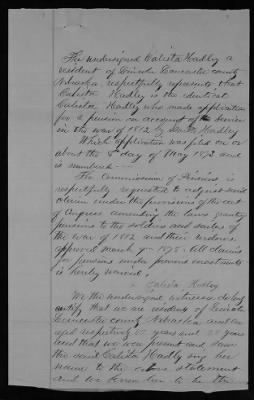 The undersigned Calista Hadly a
resident of Lincoln Lancaster county
Nebraska, respectfully represents that
Calista Hadly is the identical
Calista Hadly who made application
for a pension on account of the service
in the war of 1812 of Hadley
Which application was filed on or
about the 8" day of May 1872 and
is numbered
The Commissioner of Pensions is
respectfully requested to adjust said
claim under the provisions of the act
of Congress amending the laws granting
pensions to the soldiers and sailors of
the war of 1812 and their widows
approved march 9" 1878. all claims
for pensions under previous enactments
is hereby waived.
Calista Hadley
We the undersigned witnesses do hereby
certify that we are residents of Lincoln
Lancaster county Nebraska and are
aged respectively years and years
and that we were present and saw
the said Calista Hadly sign her
name to the above statement
and we know her to be the